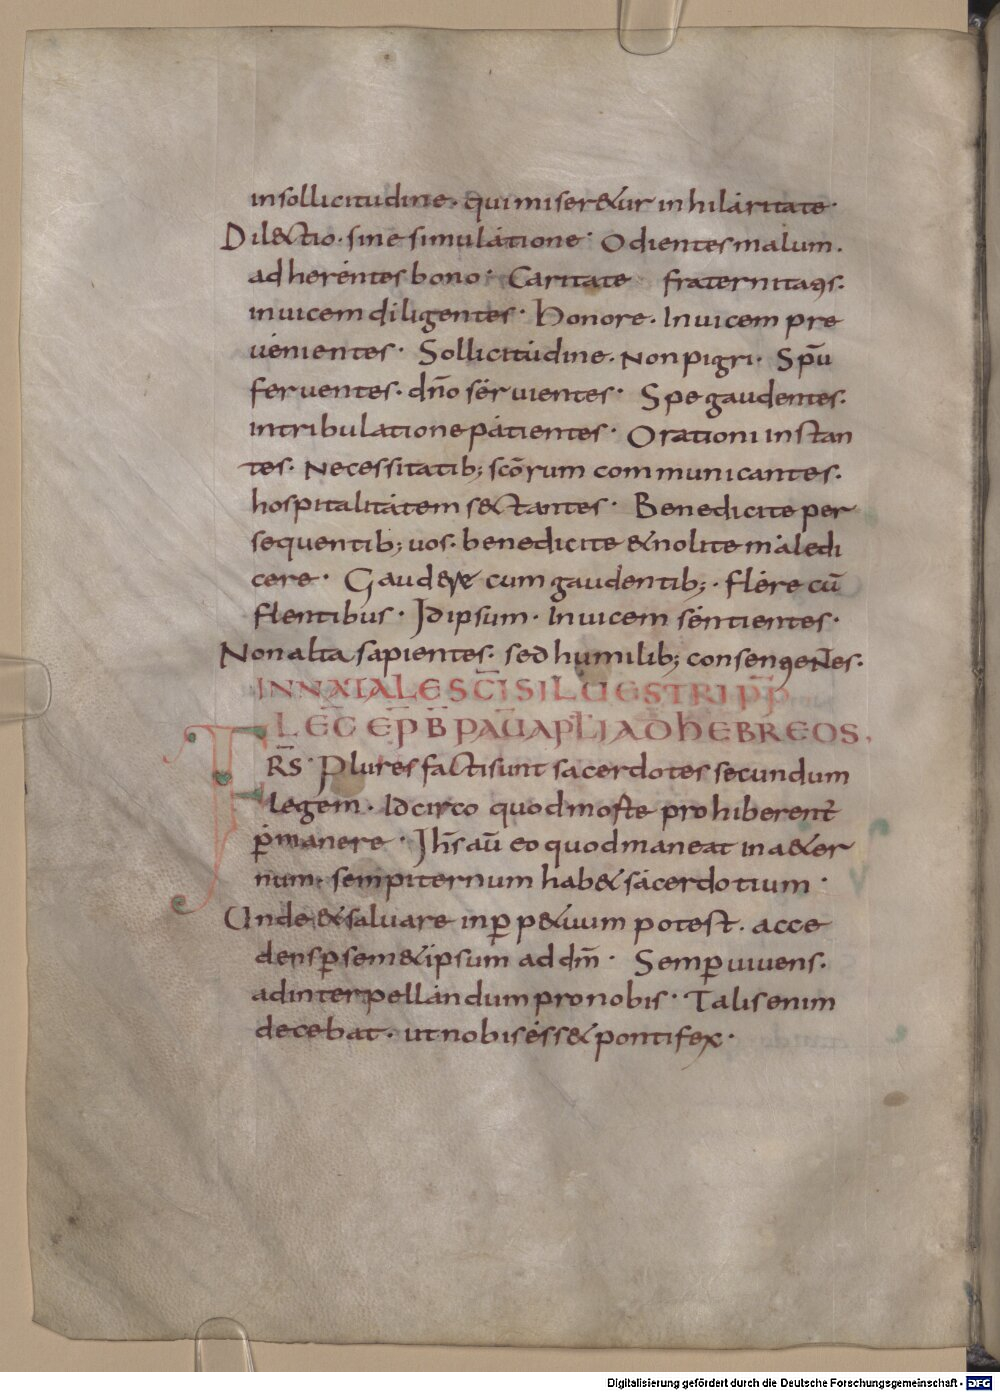 insollicitudine. quimiser&ur inhilaritate.
Dil&ctio. sine simulatione. Odientes malum.
adherentes bono. Caritate fraternitatis.
inuicem diligentes. Honore. Inuicem pre
uenientes. Sollicitudine. Non pigri. Sp̄u
feruentes. dn̄o seruientes. Spe gaudentes.
intribulatione patientes. Orationi instan
tes. Necessitatib; scōrum communicantes.
hospitalitatem s&ctantes. Benedicite per
sequentib; uos. benedicite & nolite maledi
cere. Gaud&e cum gaudentib;. flere cū
flentibus. Idipsum. Inuicem sentientes.
Non alta sapientes. sed humilib; consentientes.
IN NATALE SC̄I SILUESTRI PP̄
LEC̄ EP̄ B̄ PAŪ APLI AD HEBREOS.
FRS̄. Plures facti sunt sacerdotes secundum
legem. Idcirco quod morte prohiberent
p̄manere. Ihs̄ aū eo quod maneat in a&er
num. sempiternum hab& sacerdotium.
Unde & saluare inp̱p&uum potest. acce
dens p̱ sem&ipsum ad dm̄. Semp̱ uiuens.
adinterpellandum pro nobis. Talis enim
decebat. ut nobis ess& pontifex.
Digitalisierung gefördert durch die Deutsche Forschungsgemeinschaft - DFG